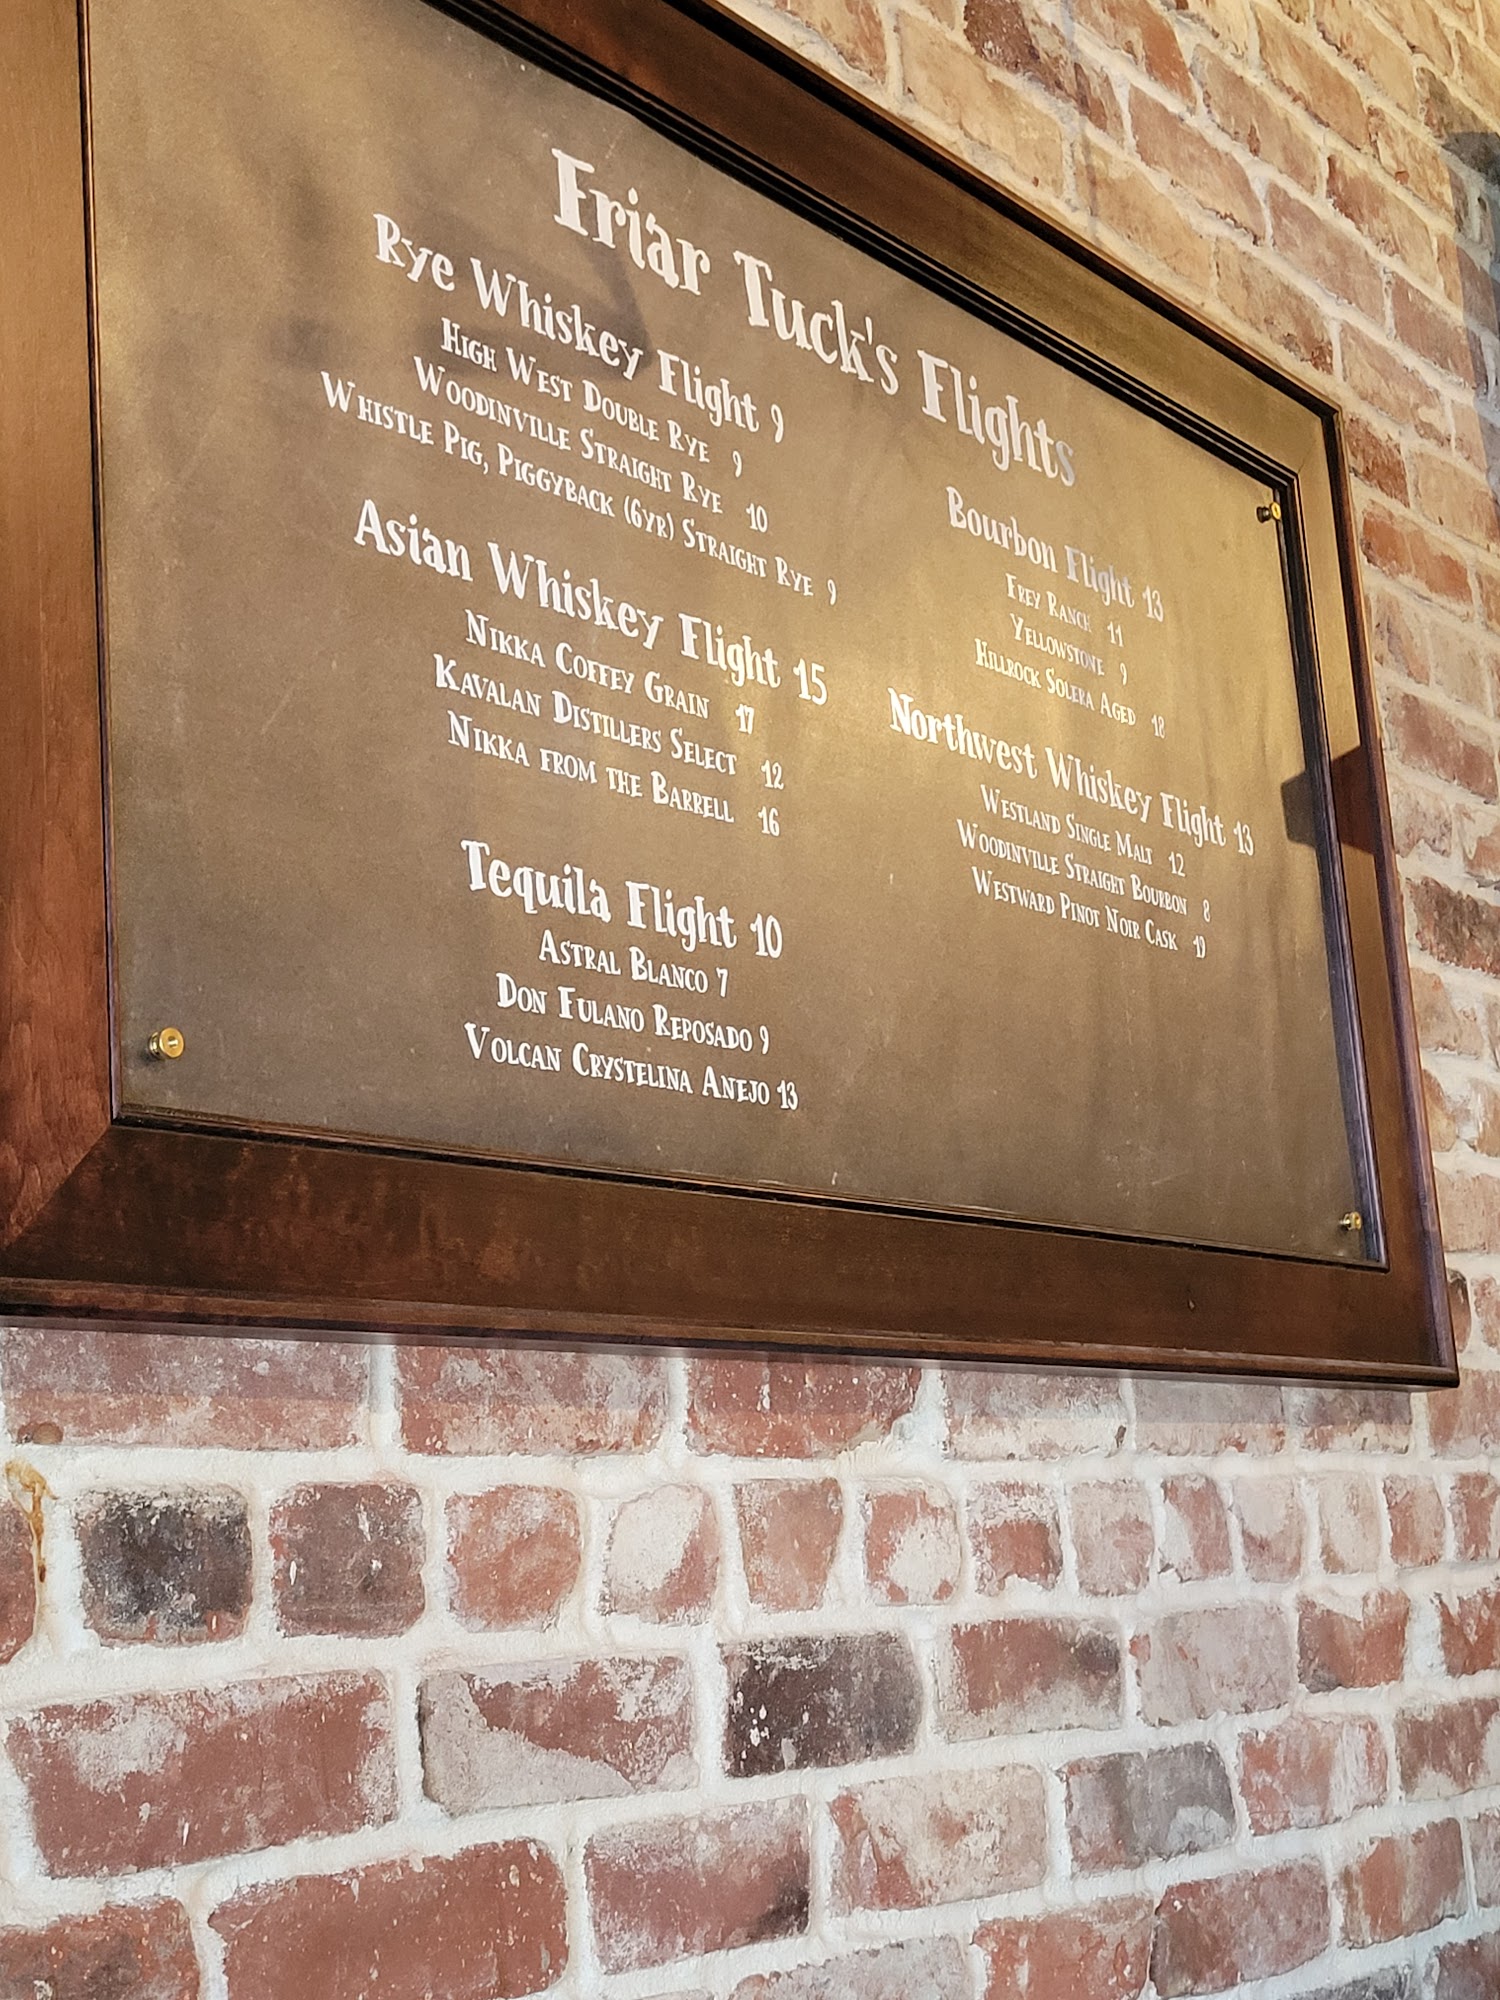 Friar Tuck's Flights
Rye Whiskey Flight 9
High West Double Rye 9
Woodinville Straight Rye 10
Whistle Pig, Piggyback (6yr) Straight Rye 9
Asian Whiskey Flight 15
Nikka Coffey Grain 17
Kavalan Distillers Select 12
Nikka from the Barrell 16
Tequila Flight 10
Astral Blanco 7
Don Fulano Reposado 9
Volcan Crystelina Anejo 13
Bourbon Flight 13
Frey Ranch 11
Yellowstone 9
Hillrock Solera Aged 18
Northwest Whiskey Flight 13
Westland Single Malt 12
Woodinville Straight Bourbon 8
Westward Pinot Noir Cask 19